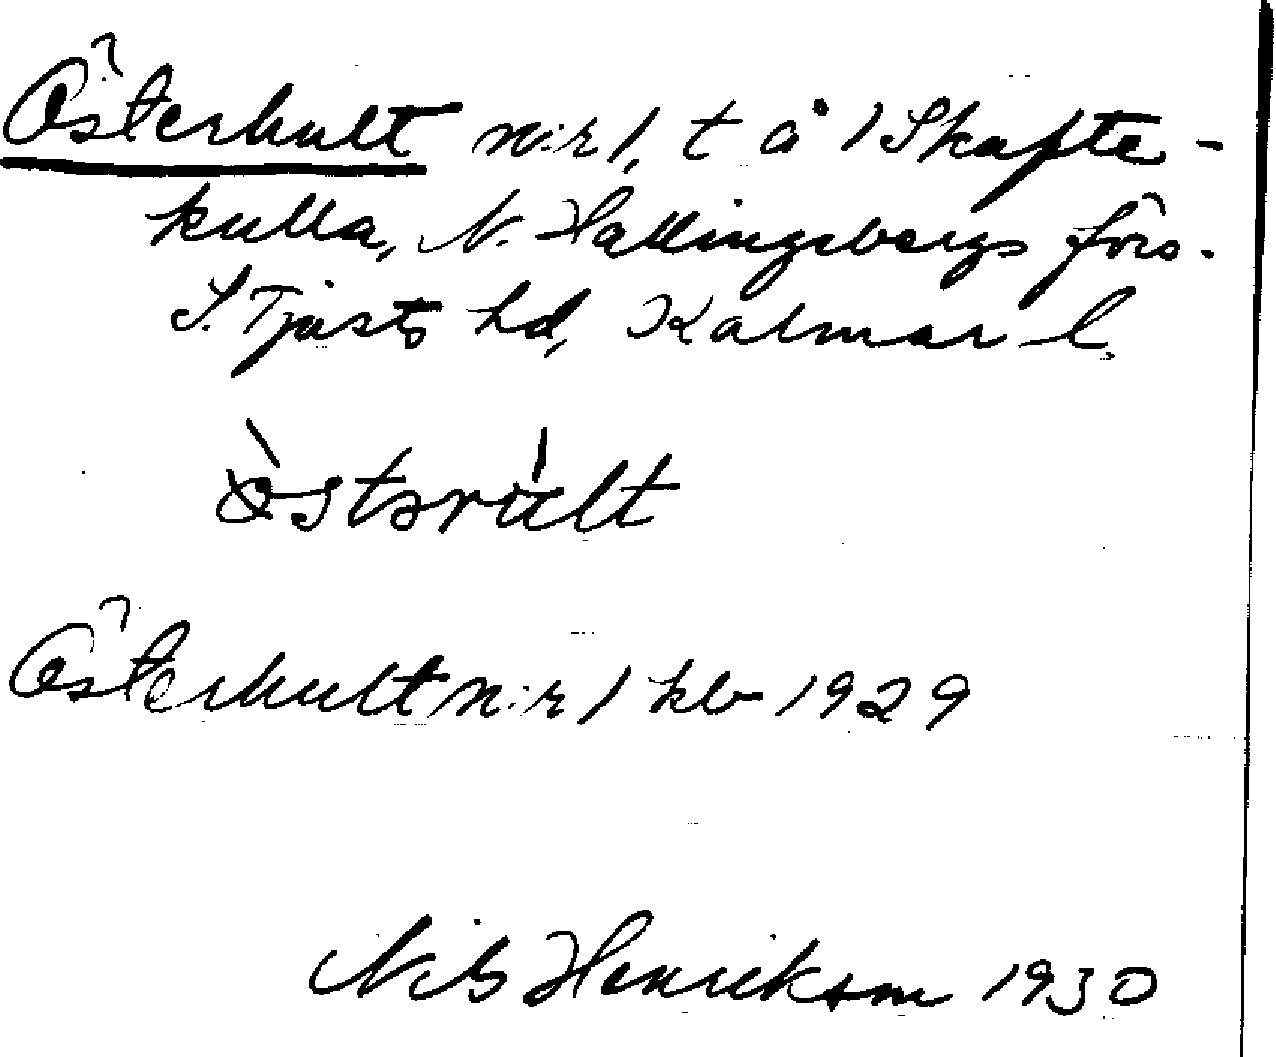 Österhult n:r 1, t å 1 Skafte-
kulla, N. Hallingebergs förs.
S. Tjusts hd, Kalmar l.
Österhult n:r 1 kb 1929
Nils Henrikson 1930